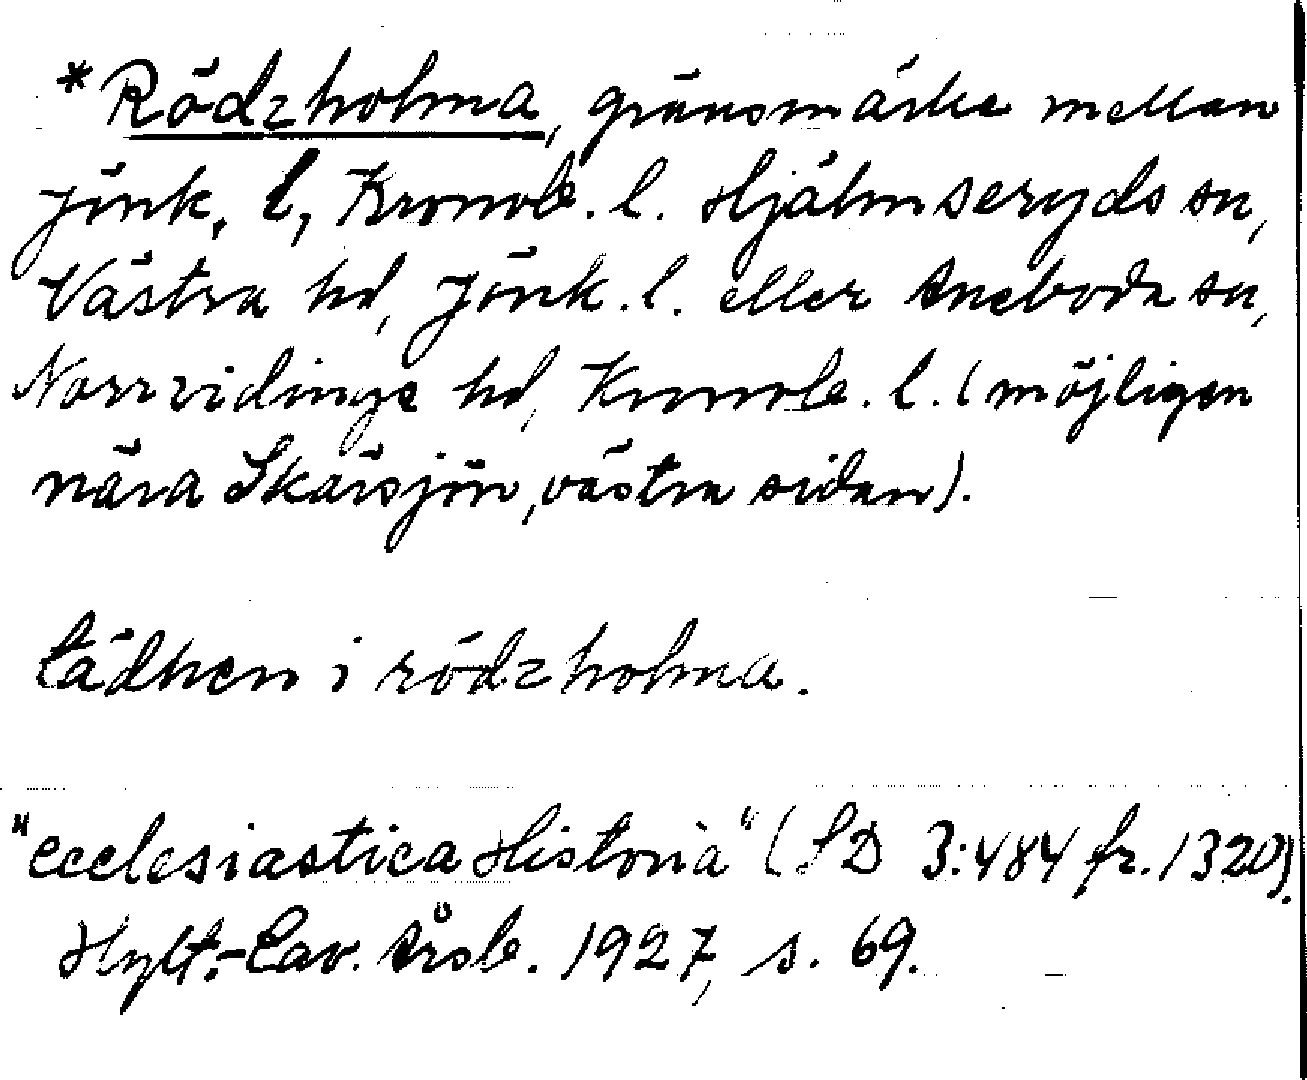 *Rödzholma, gränsmärke mellan
Jönk. l, Kronob. l. Hjälmseryds sn,
Västra hd, Jönk. l. eller Aneboda sn,
Norrvidinge hd, Kronob. l. (möjligen
nära Skärsjön, västra sidan).
tädhen i rödzholma.
"Ecclesiastica Historia" (SD 3:484 fr. 1320).
Hylt.-Cav. Årsb. 1927, s. 69.